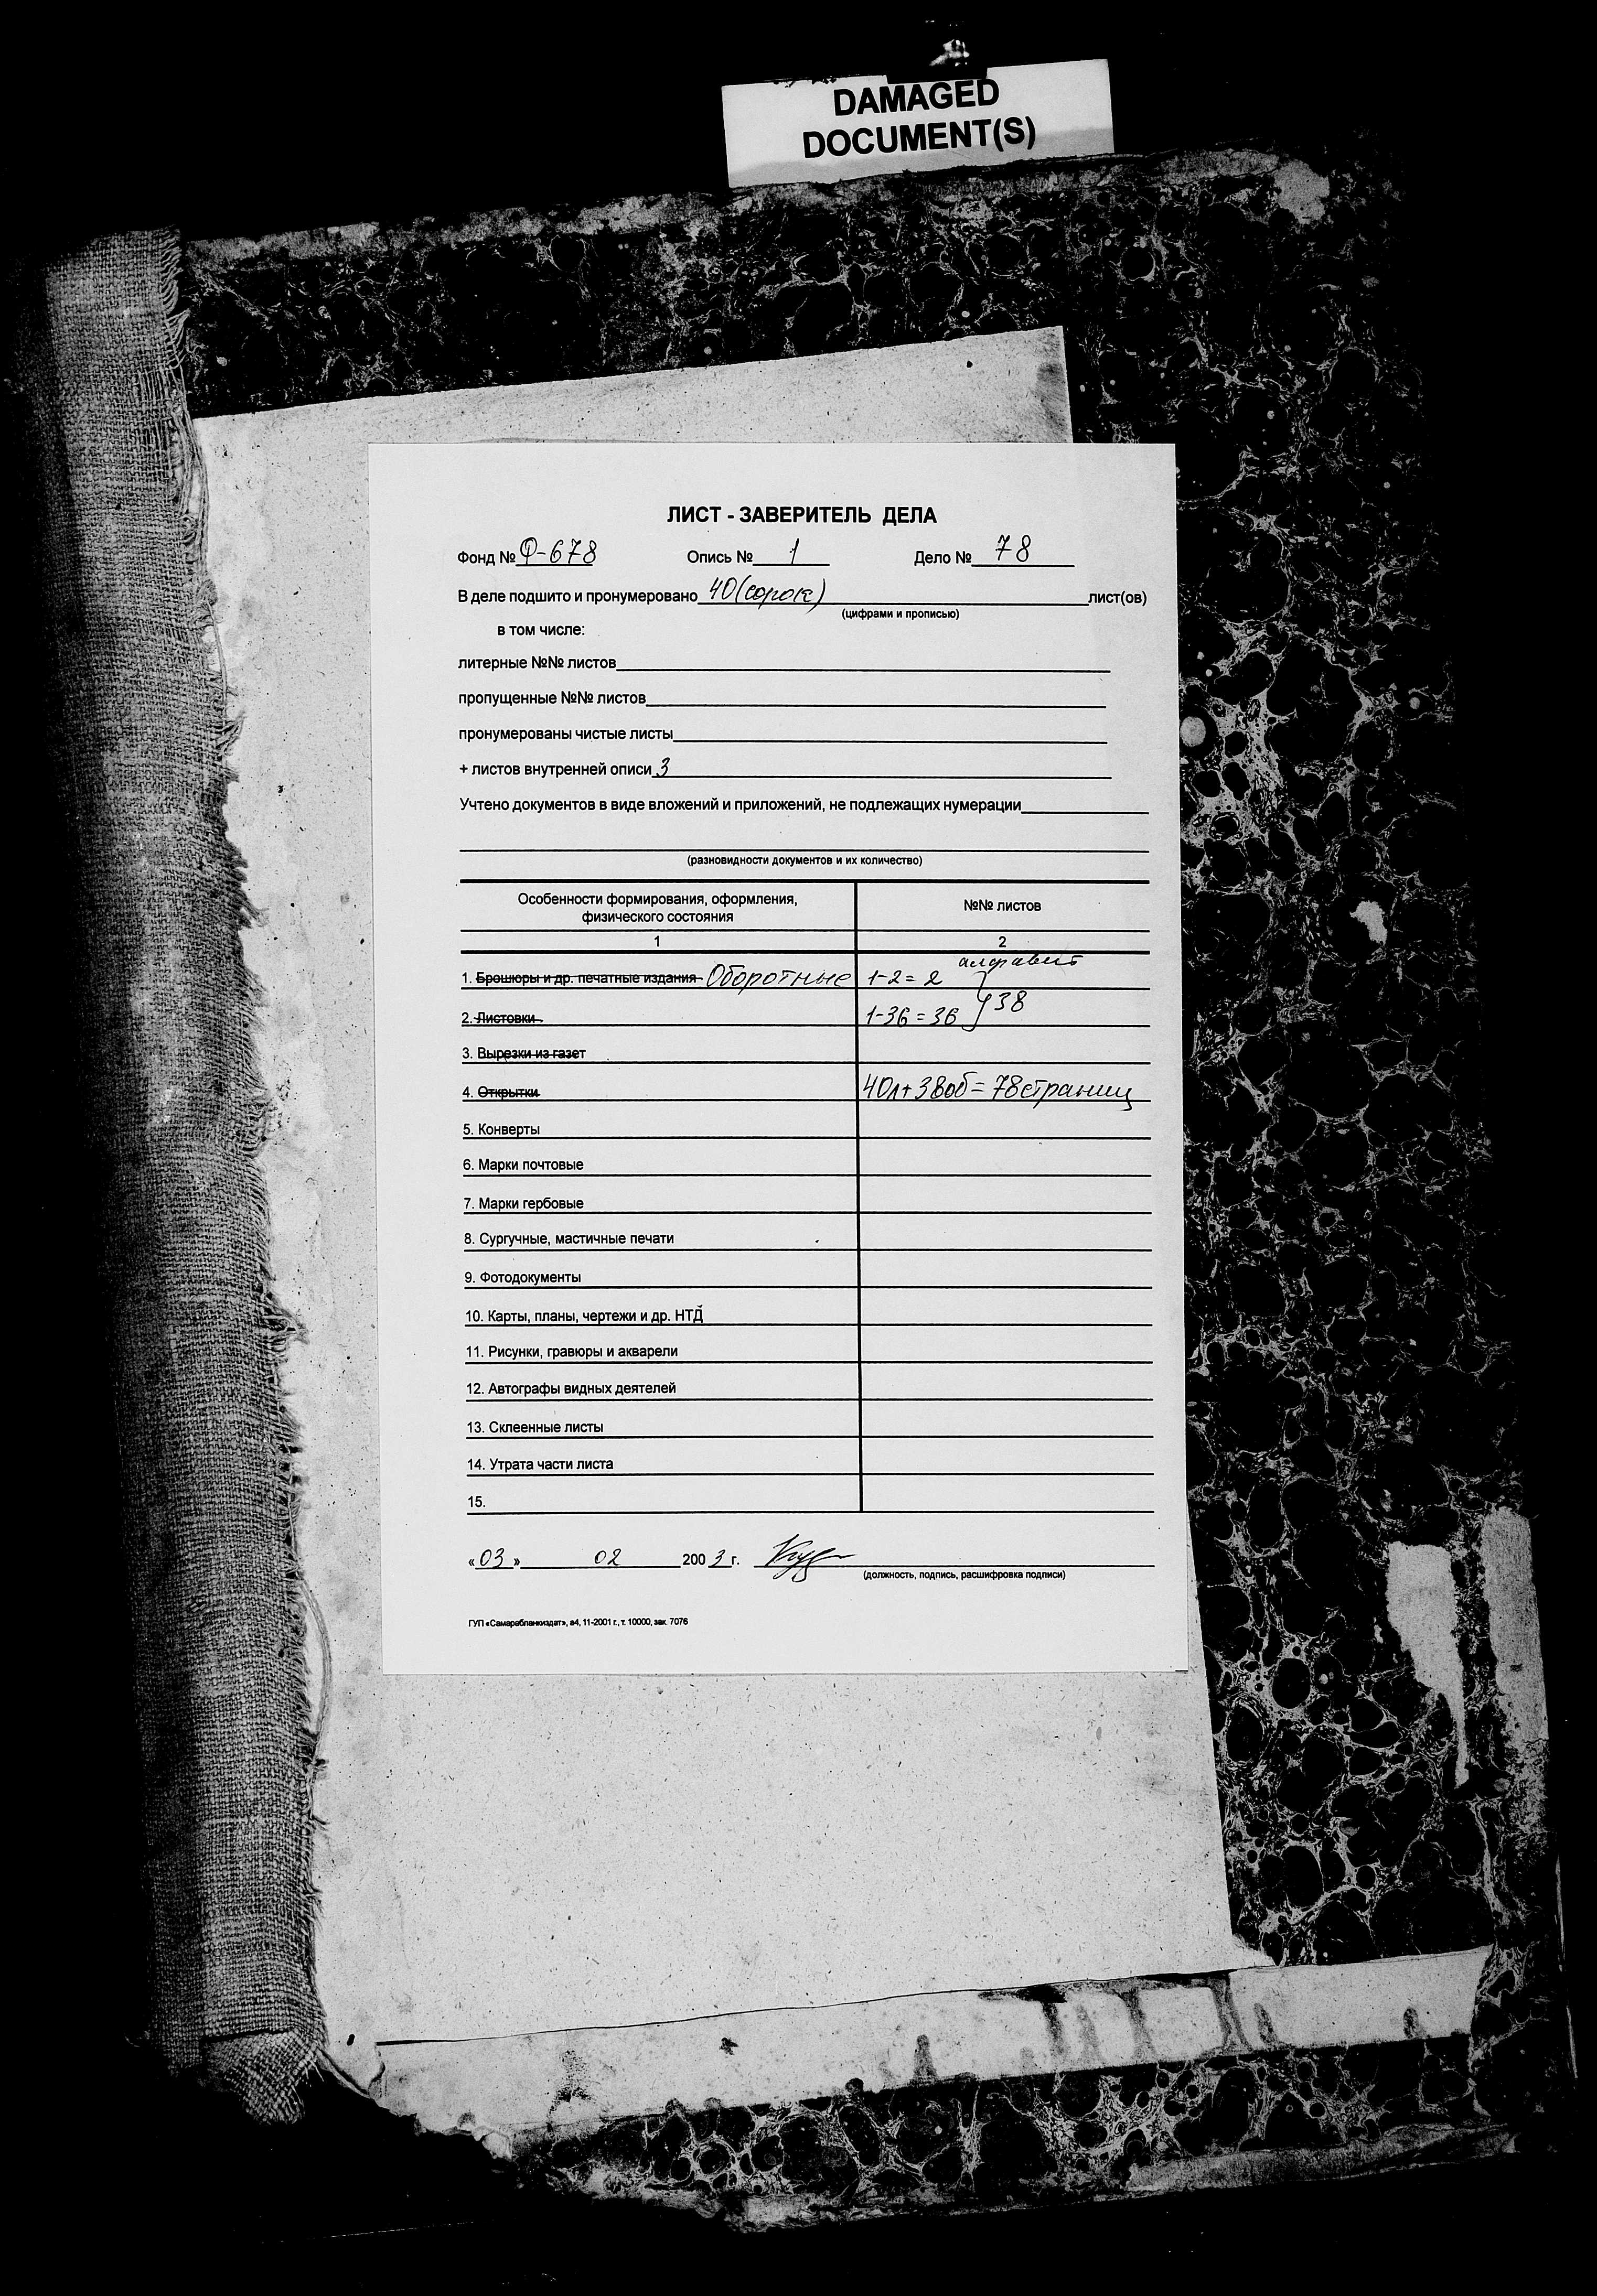 DAMAGED
DOCUMENT(S)
ЛИСТ - ЗАВЕРИТЕЛЬ ДЕЛА
Фонд № Ф-678 Опись № 1 Дело № 78
В деле подшито и пронумеровано 40 (сорок) лист(ов)
(цифрами и прописью)
в том числе:
литерные №№ листов
пропущенные №№ листов
пронумерованы чистые листы
+ листов внутренней описи 3
Учтено документов в виде вложений и приложений, не подлежащих нумерации
(разновидности документов и их количество)
Особенности формирования, оформления, №№ листов
физического состояния
1 2
алфавит
1. Брошюры и др. печатные издания Оборотные 1-2 = 2
2. Листовки 1-36 = 36 } 38
3. Вырезки из газет
4. Открытки 40л + 38об = 78 страниц
5. Конверты
6. Марки почтовые
7. Марки гербовые
8. Сургучные, мастичные печати
9. Фотодокументы
10. Карты, планы, чертежи и др. НТД
11. Рисунки, гравюры и акварели
12. Автографы видных деятелей
13. Склеенные листы
14. Утрата части листа
15.
« 03 » 02 2003 г.
(должность, подпись, расшифровка подписи)
ГУП «Самарабланкиздат», а4, 11-2001 г., т. 10000, зак. 7076